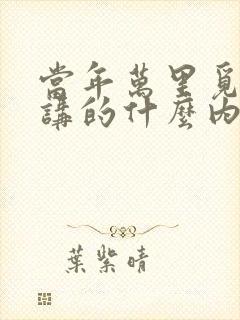 當年萬里覓
講的什麼內
葉紫晴